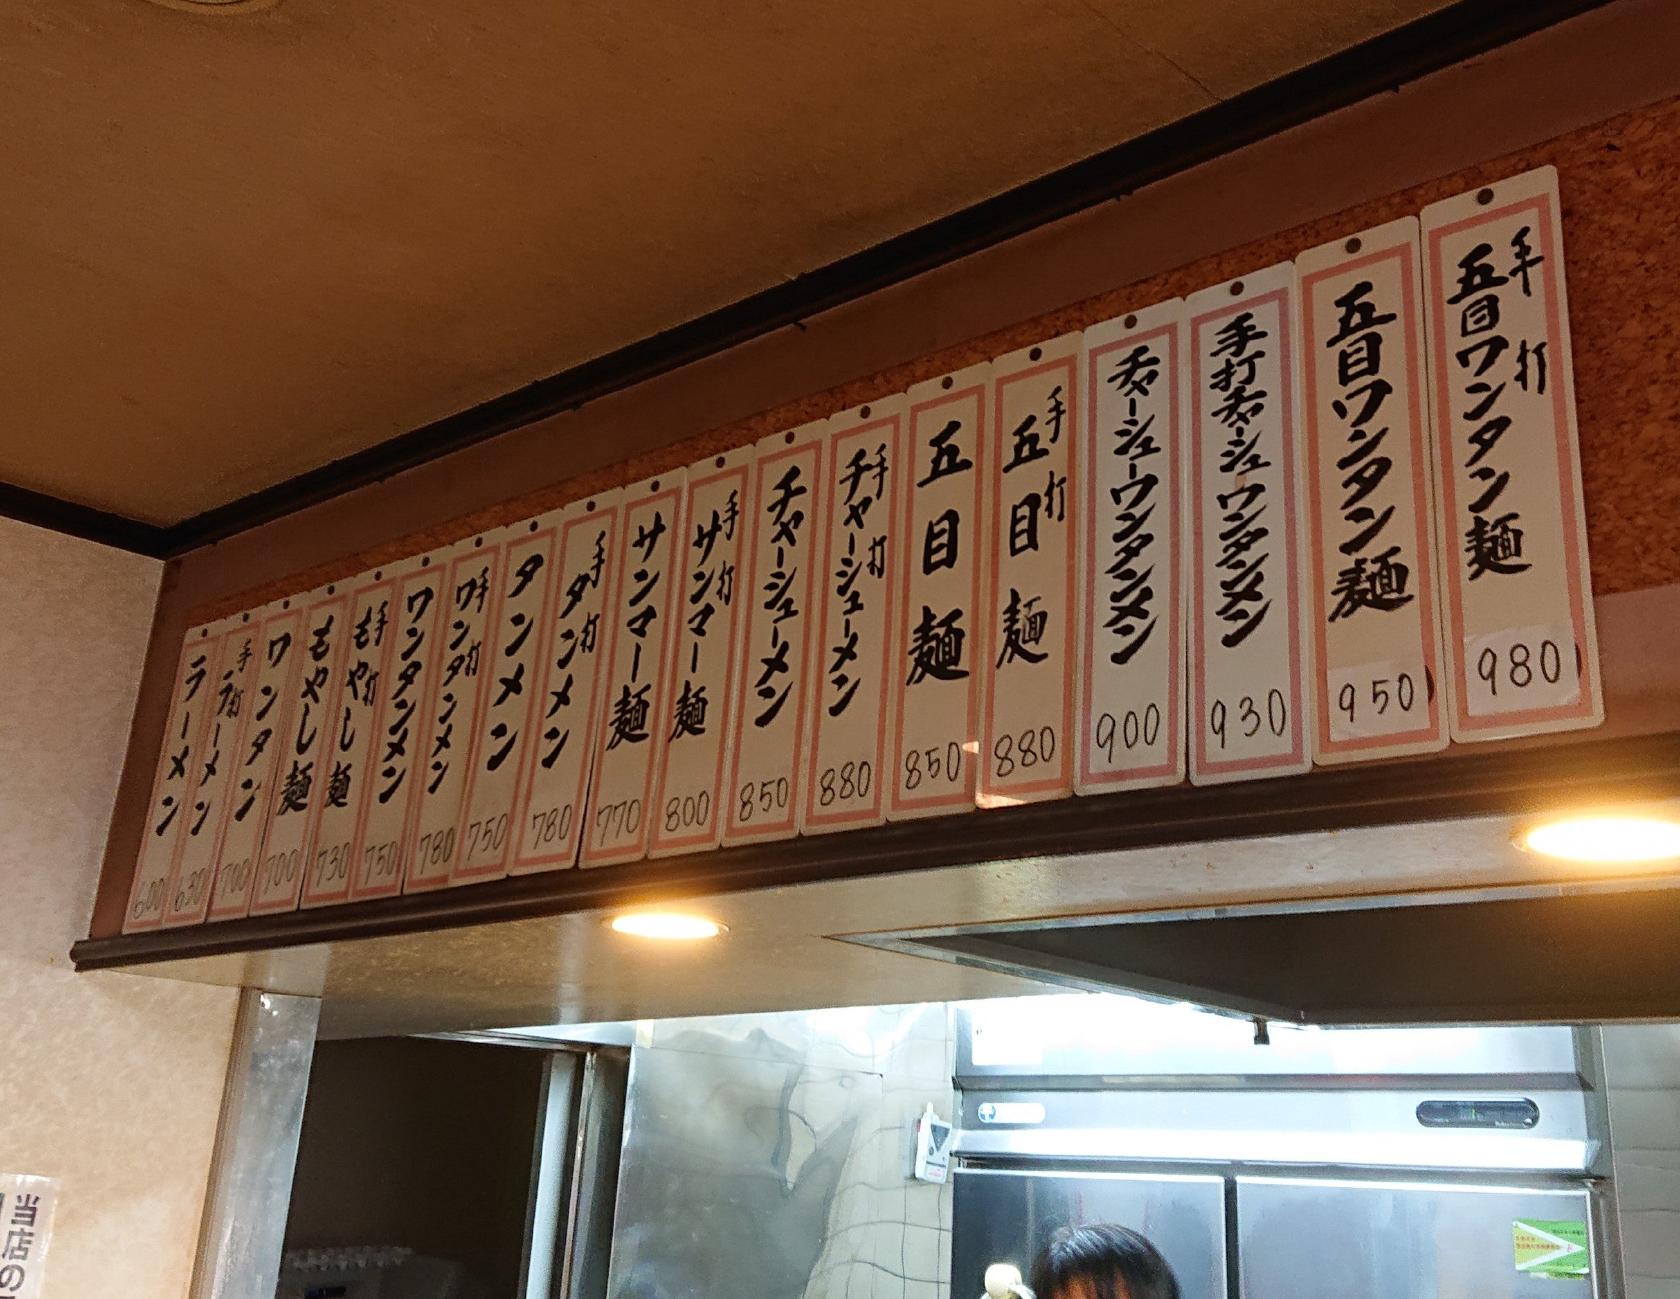 手打五目ワンタン麺 980
五目ワンタン麺 950
手打チャーシューワンタンメン 930
チャーシューワンタンメン 900
手打五目麺 880
五目麺 850
手打チャーシューメン 880
チャーシューメン 850
手打サンマー麺 800
サンマー麺 770
手打タンメン 780
タンメン 750
手打ワンタンメン 780
ワンタンメン 750
手打もやし麺 730
もやし麺 700
ワンタン 700
手打ラーメン 630
ラーメン 600
当店の